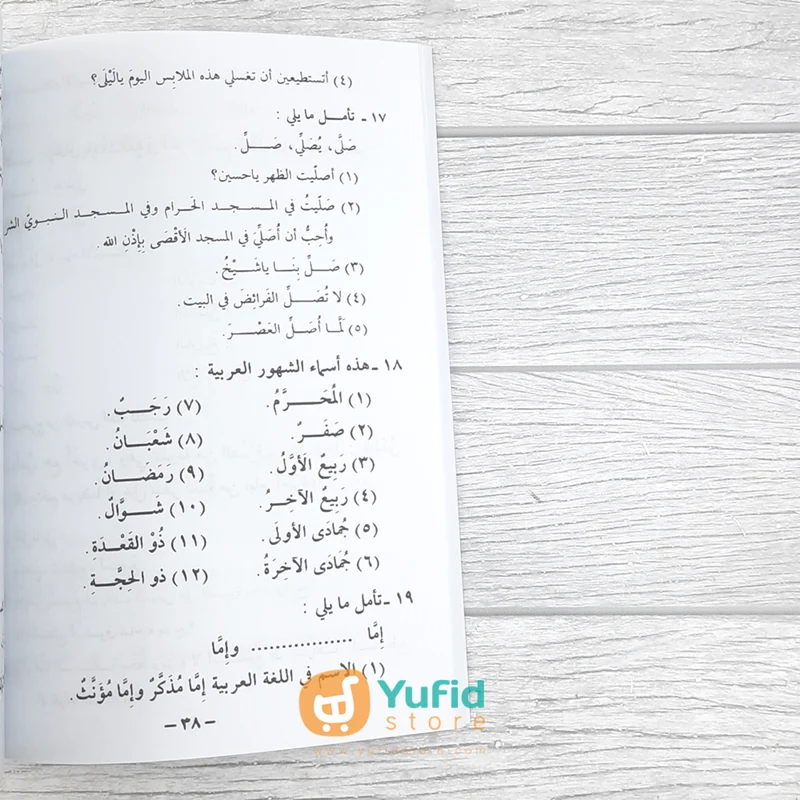 (٤) أتستطيعين أن تغسلي هذه الملابِس اليومَ يالَيْلَى؟
١٧ ـ تأمل ما يلي :
صَلَّى، يُصَلِّي، صَلِّ.
(١) أصلّيت الظهر ياحسين؟
(٢) صَلّيتُ في المسجد الحَرام وفي المسجد النبويّ
وأُحِبُّ أن أُصَلِّيَ في المسجد الأَقْصَى بِإِذْنِ الله.
(٣) صَلِّ بِنَا ياشَيْخُ.
(٤) لا تُصَلِّ الفَرائِضَ في البيت.
(٥) لَمَّا أُصَلِّ العَصْرَ.
١٨ ـ هذه أسماء الشهور العربية :
(١) المُحَرَّمُ. (٧) رَجَبٌ.
(٢) صَفَرٌ. (٨) شَعْبَانُ.
(٣) رَبِيعٌ الأَوَّلُ. (٩) رَمَضَانُ.
(٤) رَبِيعٌ الآخِرُ. (١٠) شوَّالٌ.
(٥) جُمادَى الأولَى. (١١) ذُوْ القَعْدَةِ.
(٦) جُمَادَى الآخِرَةُ. (١٢) ذو الحِجَّةِ.
١٩ ـ تأمل ما يلي :
إمَّا ................ وإمَّا
(١) الاسم في اللغة العربية إمَّا مُذَكَّرٌ وإمَّا مُؤَنَّثٌ.
– ٣٨ –
Yufid
store